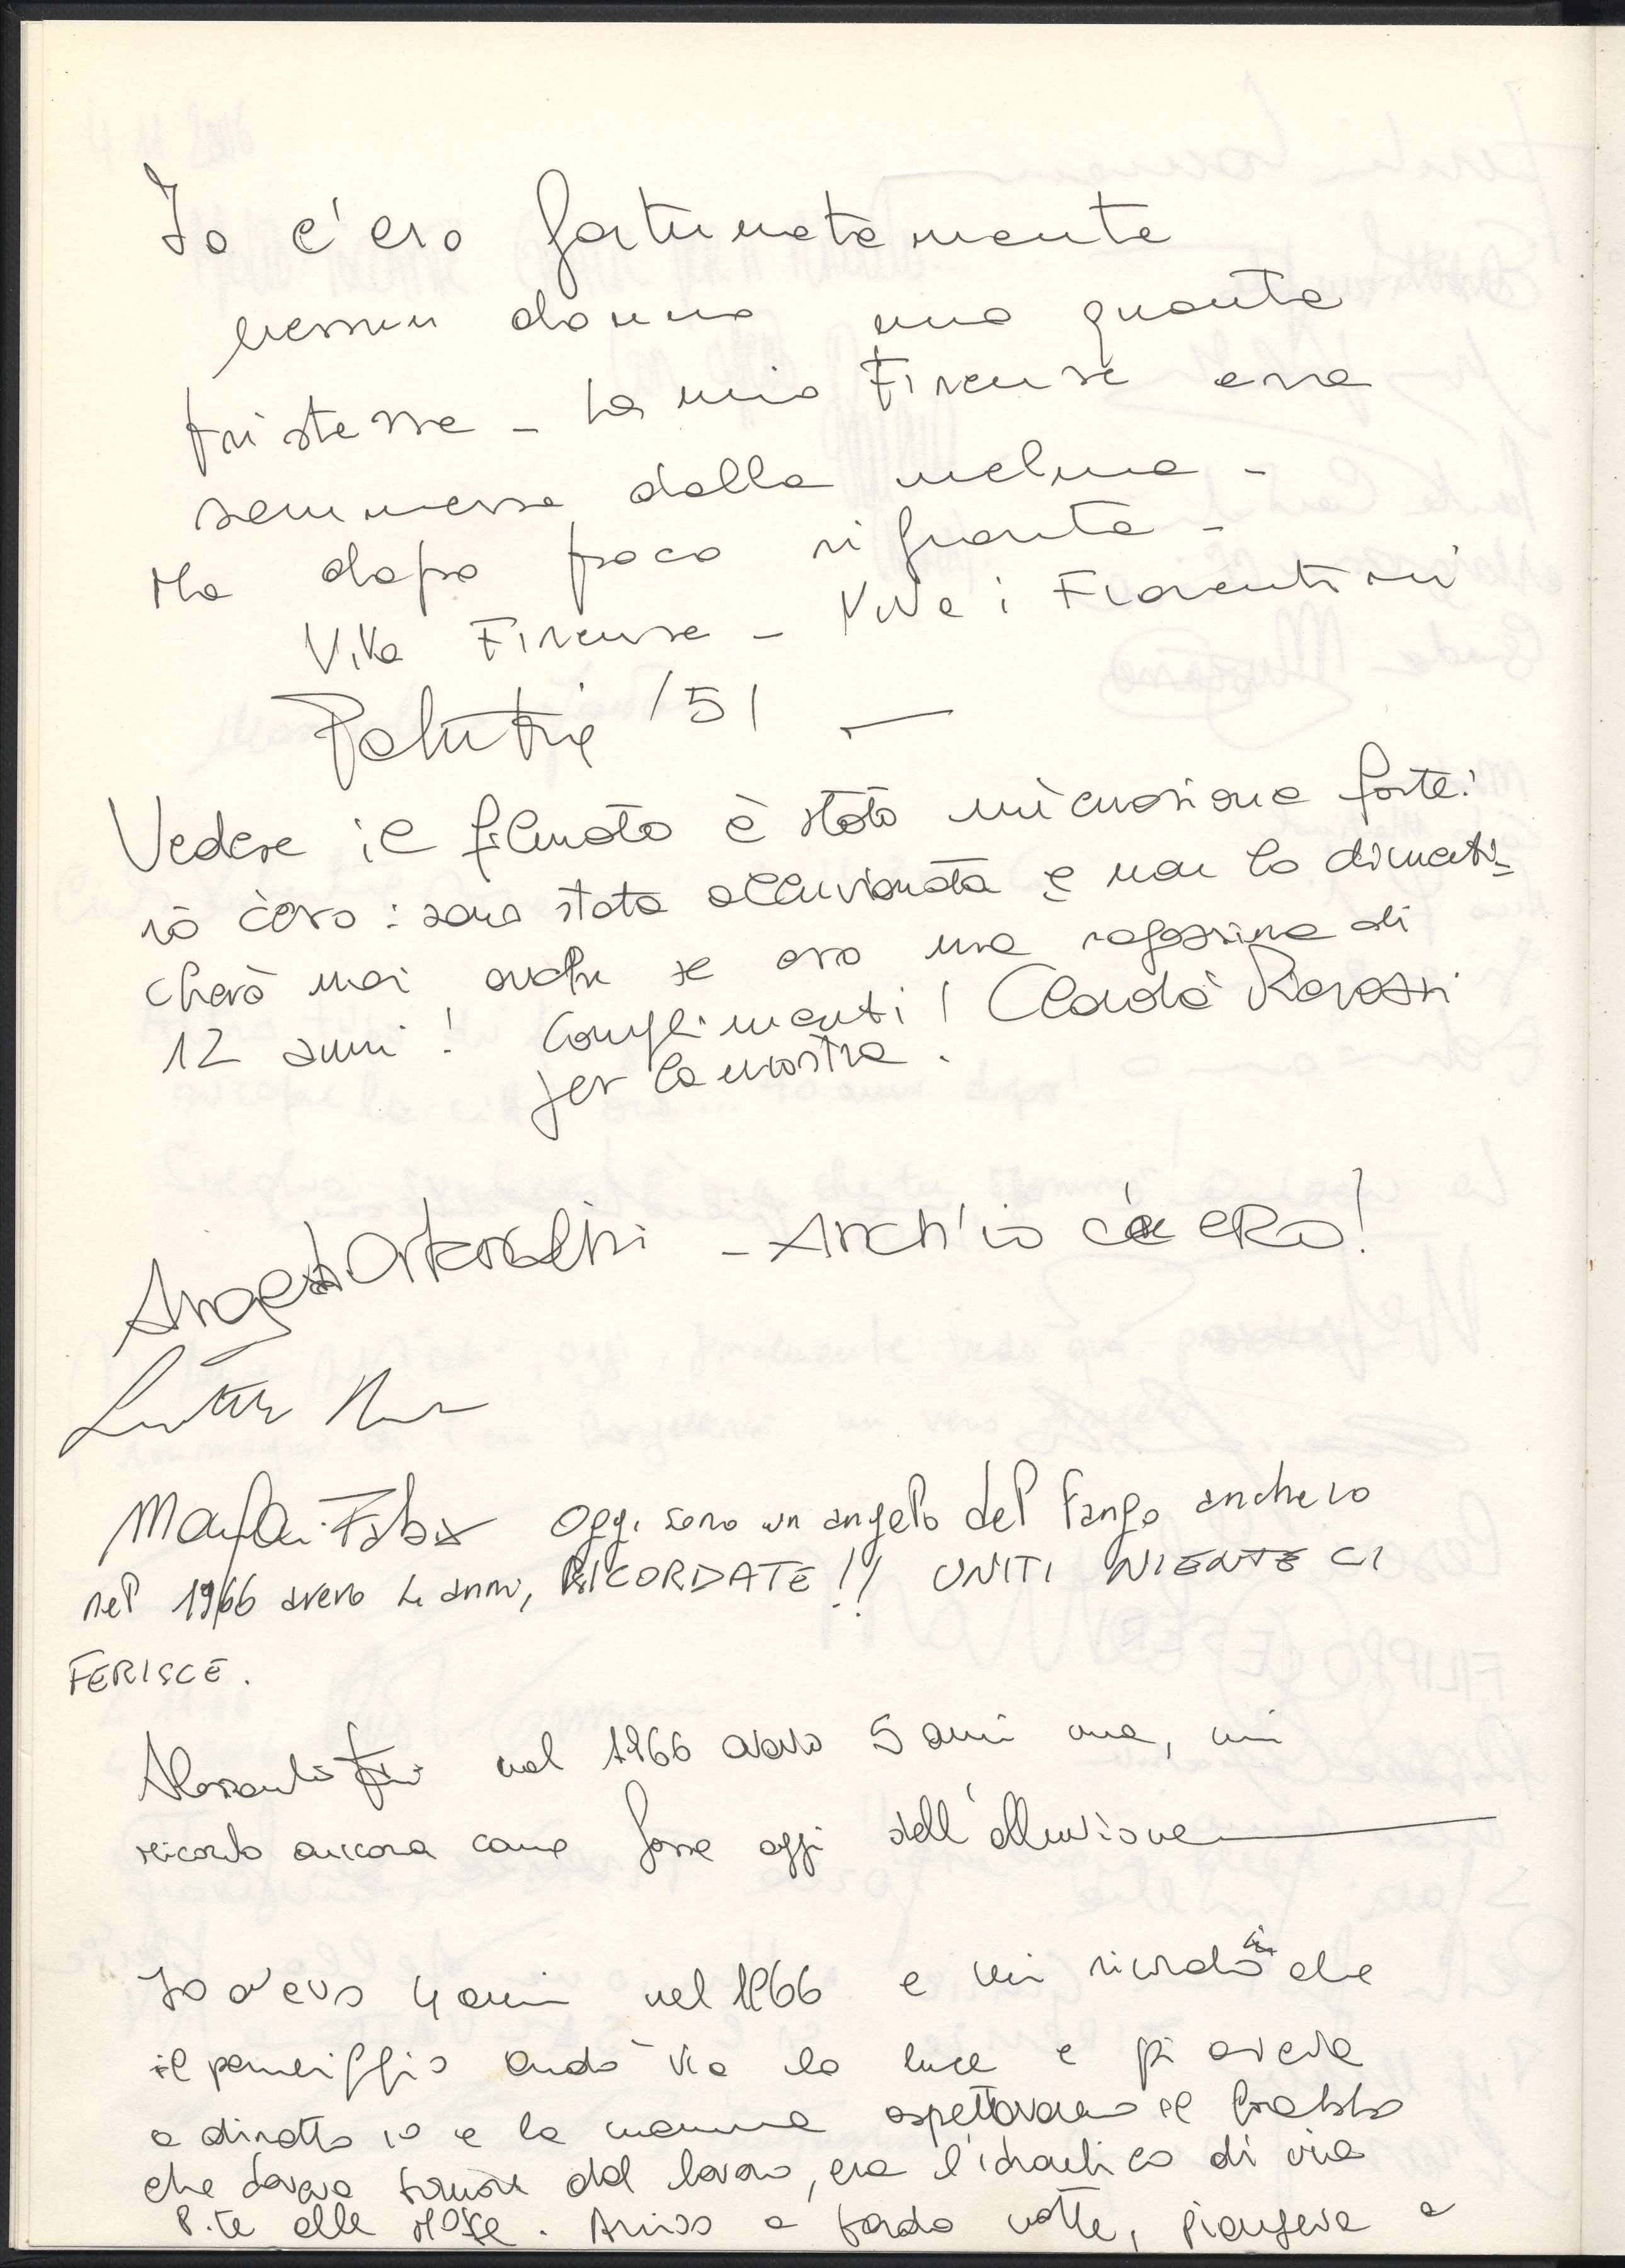 Io c'ero fortunatamente
nessun danno ma quanta
tristezza - La mia Firenze era
sommersa dalla melma -
Ma dopo poco rifiorita -
Viva Firenze - Viva i Fiorentini
'51 —
Vedere il filmato è stato un'emozione forte!
io c'ero: sono stata alluvionata e non lo dimenti-
cherò mai anche se ero una ragazzina di
12 anni! Complimenti! Claudia
per la mostra.
Angela - Anch'io c'ero!
Oggi sono un angelo del fango anche io
nel 1966 avevo 4 anni, RICORDATE!! UNITI NIENTE CI
FERISCE.
nel 1966 avevo 5 anni ma, mi
ricordo ancora come fosse oggi dell'alluvione
Io avevo 4 anni nel 1966 e mi ricordo che
il pomeriggio andò via la luce e pioveva
a dirotto io e la mamma aspettavamo il babbo
che doveva tornare dal lavoro, era l'idraulico di via
P.te alle Mosse. Arrivò a tarda notte, piangeva e